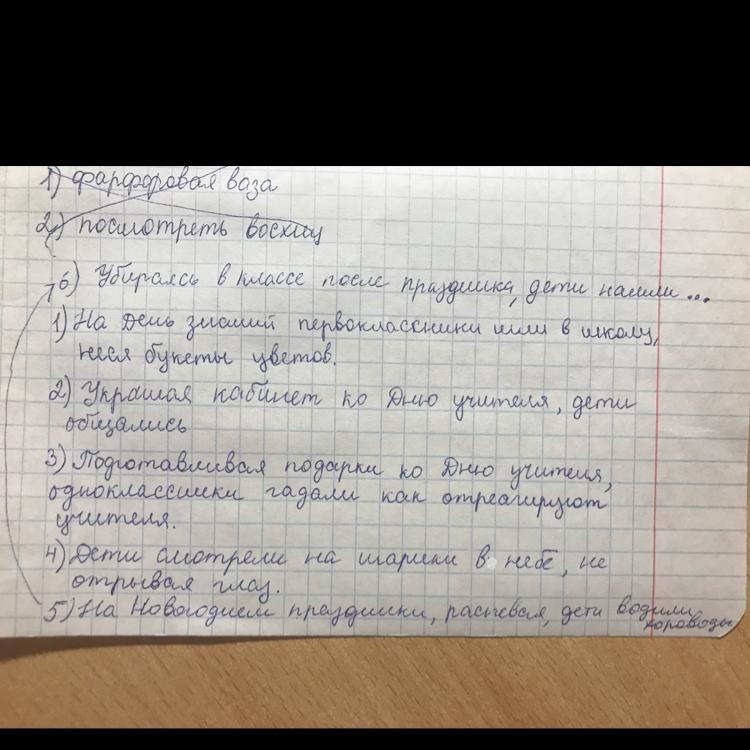 1) фарфоровая ваза
2) посмотреть восхищ
6) Убираясь в классе после праздника, дети нашли ...
1) На День знаний первоклассники шли в школу,
неся букеты цветов.
2) Украшая кабинет ко Дню учителя, дети
общались
3) Подготавливая подарки ко Дню учителя,
одноклассники гадали как отреагируют
учителя.
4) Дети смотрели на шарики в небе, не
отрывая глаз.
5) На Новогоднем праздники, распевая, дети водили
хороводы